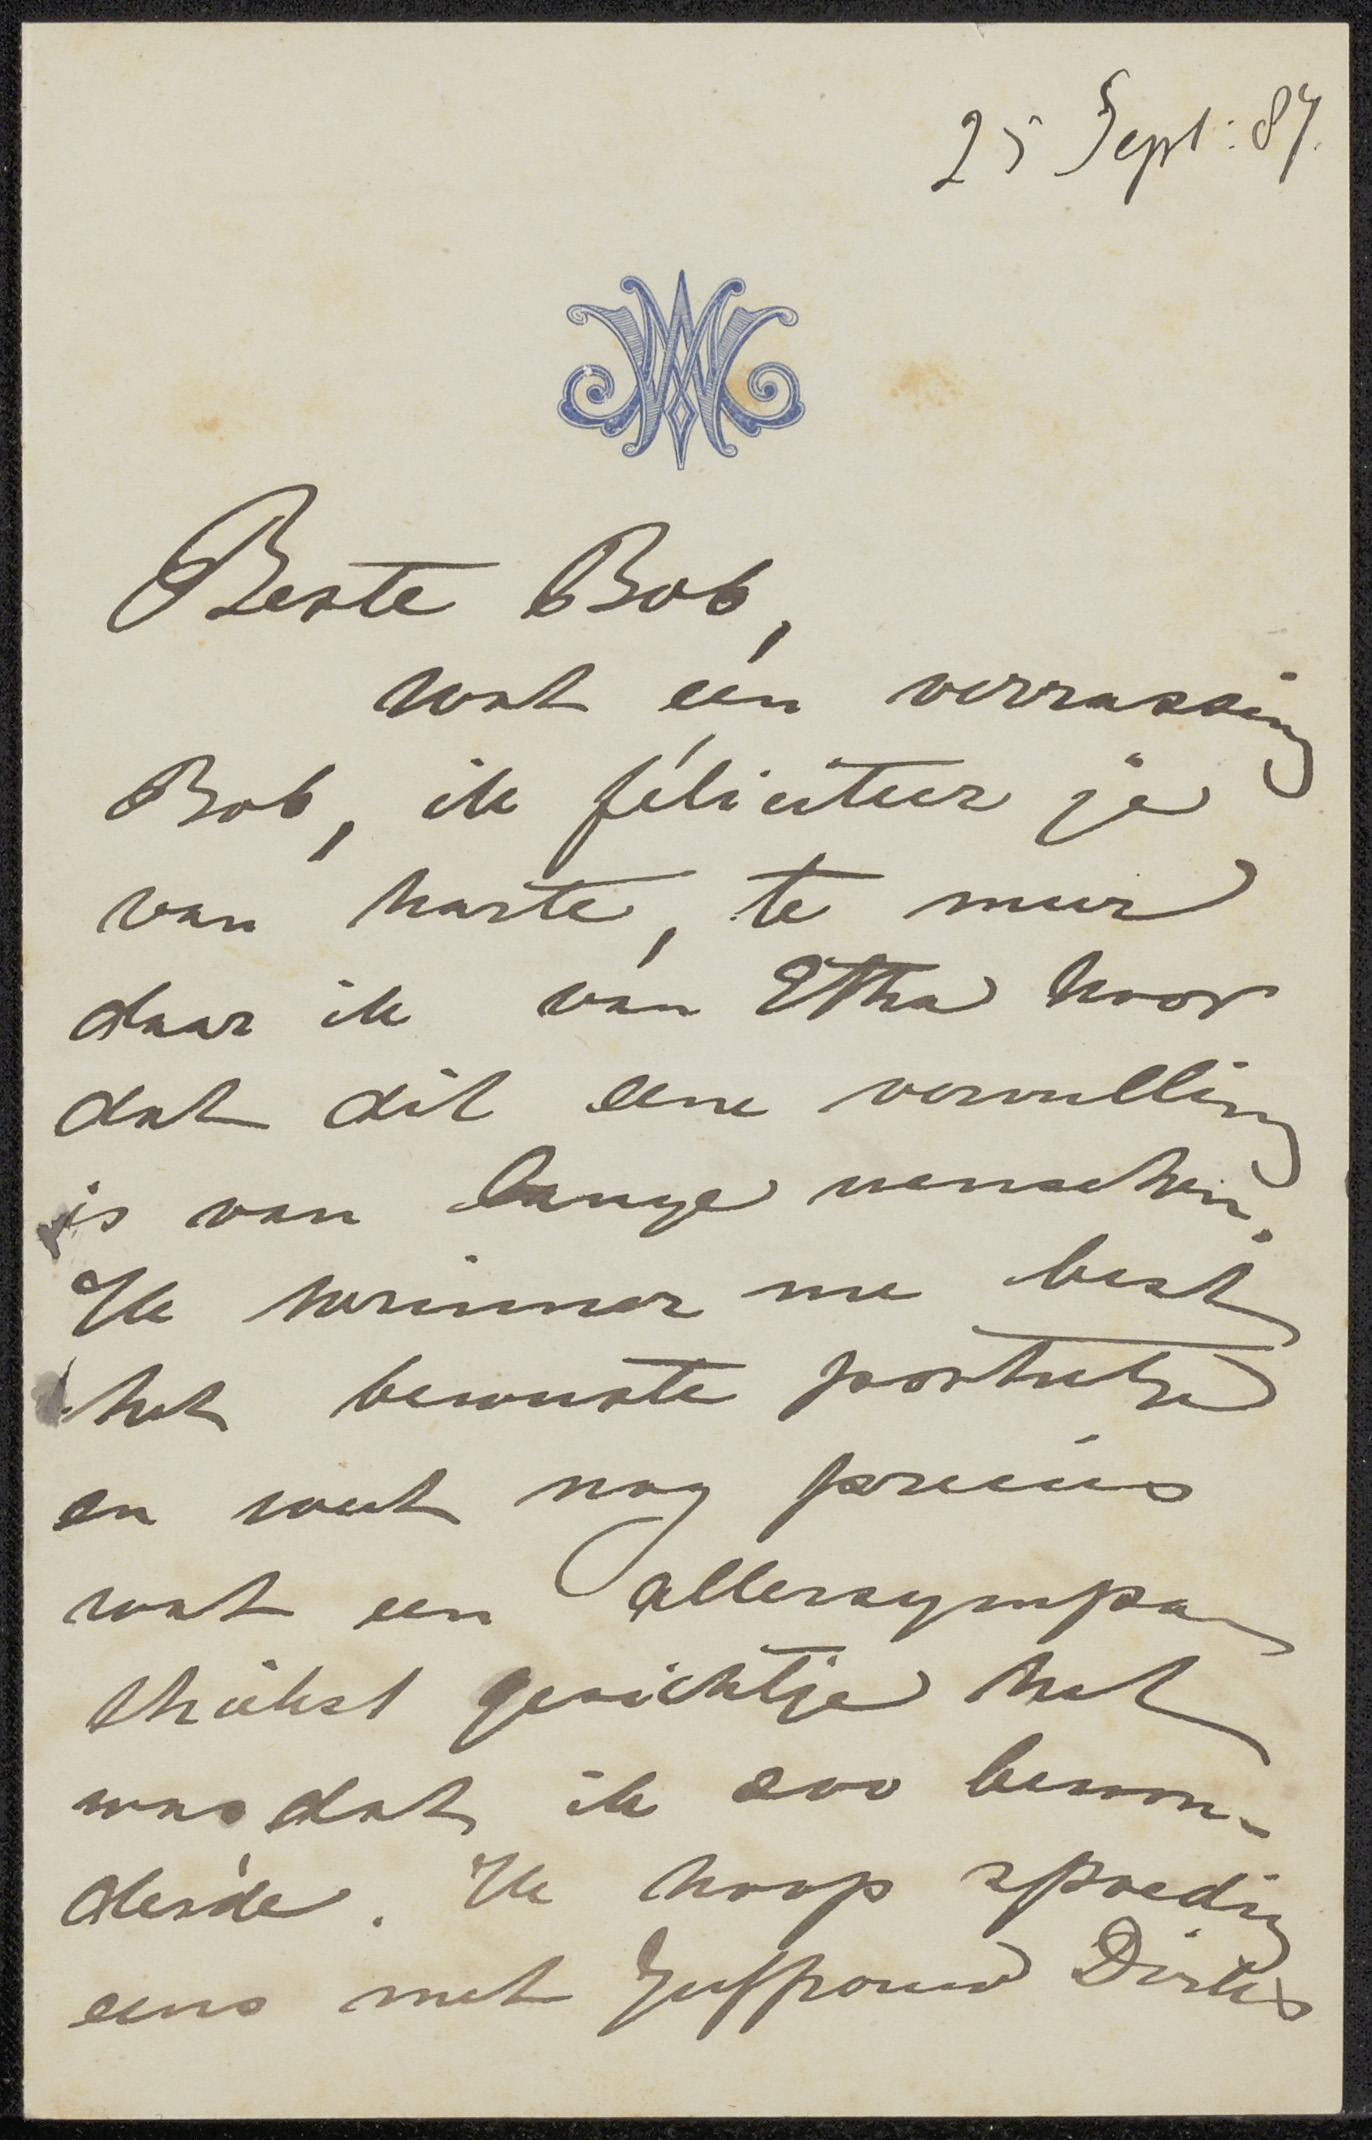 25 Sept: 87.
Beste Bob,
wat een verrassing
Bob, ik féliciteer je
van harte, te meer
daar ik van Etha hoor
dat dit eene vervulling
is van lange wenschen.
Ik herinner me best
het bewuste portretje
en weet nog precies
wat een allersympa-
thiekst gezichtje het
was dat ik zoo bewon-
derde. Ik hoop spoedig
eens met Juffrouw Dirks